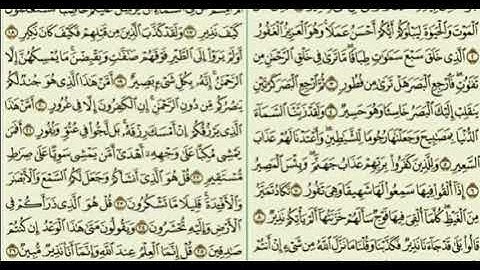 ٱلْمَوْتَ وَٱلْحَيَوٰةَ لِيَبْلُوَكُمْ أَيُّكُمْ أَحْسَنُ عَمَلًا وَهُوَ ٱلْعَزِيزُ ٱلْغَفُورُ
٢ ٱلَّذِى خَلَقَ سَبْعَ سَمَٰوَٰتٍ طِبَاقًا مَّا تَرَىٰ فِى خَلْقِ ٱلرَّحْمَٰنِ مِن
تَفَٰوُتٍ فَٱرْجِعِ ٱلْبَصَرَ هَلْ تَرَىٰ مِن فُطُورٍ ٣ ثُمَّ ٱرْجِعِ ٱلْبَصَرَ كَرَّتَيْنِ
يَنقَلِبْ إِلَيْكَ ٱلْبَصَرُ خَاسِئًا وَهُوَ حَسِيرٌ ٤ وَلَقَدْ زَيَّنَّا ٱلسَّمَآءَ
ٱلدُّنْيَا بِمَصَٰبِيحَ وَجَعَلْنَٰهَا رُجُومًا لِّلشَّيَٰطِينِ وَأَعْتَدْنَا لَهُمْ عَذَابَ
ٱلسَّعِيرِ ٥ وَلِلَّذِينَ كَفَرُوا۟ بِرَبِّهِمْ عَذَابُ جَهَنَّمَ وَبِئْسَ ٱلْمَصِيرُ
٦ إِذَآ أُلْقُوا۟ فِيهَا سَمِعُوا۟ لَهَا شَهِيقًا وَهِىَ تَفُورُ ٧ تَكَادُ تَمَيَّزُ
مِنَ ٱلْغَيْظِ كُلَّمَآ أُلْقِىَ فِيهَا فَوْجٌ سَأَلَهُمْ خَزَنَتُهَآ أَلَمْ يَأْتِكُمْ نَذِيرٌ ٨
قَالُوا۟ بَلَىٰ قَدْ جَآءَنَا نَذِيرٌ فَكَذَّبْنَا وَقُلْنَا مَا نَزَّلَ ٱللَّهُ مِن شَىْءٍ إِنْ أَنتُمْ
كَيْفَ نَذِيرِ ١٧ وَلَقَدْ كَذَّبَ ٱلَّذِينَ مِن قَبْلِهِمْ فَكَيْفَ كَانَ نَكِيرِ ١٨
أَوَلَمْ يَرَوْا۟ إِلَى ٱلطَّيْرِ فَوْقَهُمْ صَٰٓفَّٰتٍ وَيَقْبِضْنَ مَا يُمْسِكُهُنَّ إِلَّا
ٱلرَّحْمَٰنُ إِنَّهُۥ بِكُلِّ شَىْءٍۭ بَصِيرٌ ١٩ أَمَّنْ هَٰذَا ٱلَّذِى هُوَ جُندٌ لَّكُمْ
يَنصُرُكُم مِّن دُونِ ٱلرَّحْمَٰنِ إِنِ ٱلْكَٰفِرُونَ إِلَّا فِى غُرُورٍ ٢٠ أَمَّنْ هَٰذَا
ٱلَّذِى يَرْزُقُكُمْ إِنْ أَمْسَكَ رِزْقَهُۥ بَل لَّجُّوا۟ فِى عُتُوٍّ وَنُفُورٍ ٢١ أَفَمَن
يَمْشِى مُكِبًّا عَلَىٰ وَجْهِهِۦٓ أَهْدَىٰٓ أَمَّن يَمْشِى سَوِيًّا عَلَىٰ صِرَٰطٍ
مُّسْتَقِيمٍ ٢٢ قُلْ هُوَ ٱلَّذِىٓ أَنشَأَكُمْ وَجَعَلَ لَكُمُ ٱلسَّمْعَ وَٱلْأَبْصَٰرَ
وَٱلْأَفْـِٔدَةَ قَلِيلًا مَّا تَشْكُرُونَ ٢٣ قُلْ هُوَ ٱلَّذِى ذَرَأَكُمْ فِى
ٱلْأَرْضِ وَإِلَيْهِ تُحْشَرُونَ ٢٤ وَيَقُولُونَ مَتَىٰ هَٰذَا ٱلْوَعْدُ إِن كُنتُمْ
صَٰدِقِينَ ٢٥ قُلْ إِنَّمَا ٱلْعِلْمُ عِندَ ٱللَّهِ وَإِنَّمَآ أَنَا۠ نَذِيرٌ مُّبِينٌ ٢٦